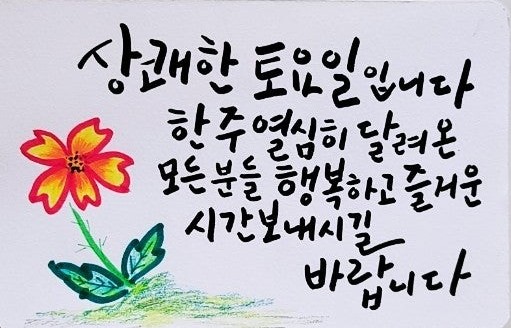 상쾌한 토요일입니다
한 주 열심히 달려온
모든 분들 행복하고 즐거운
시간 보내시길
바랍니다